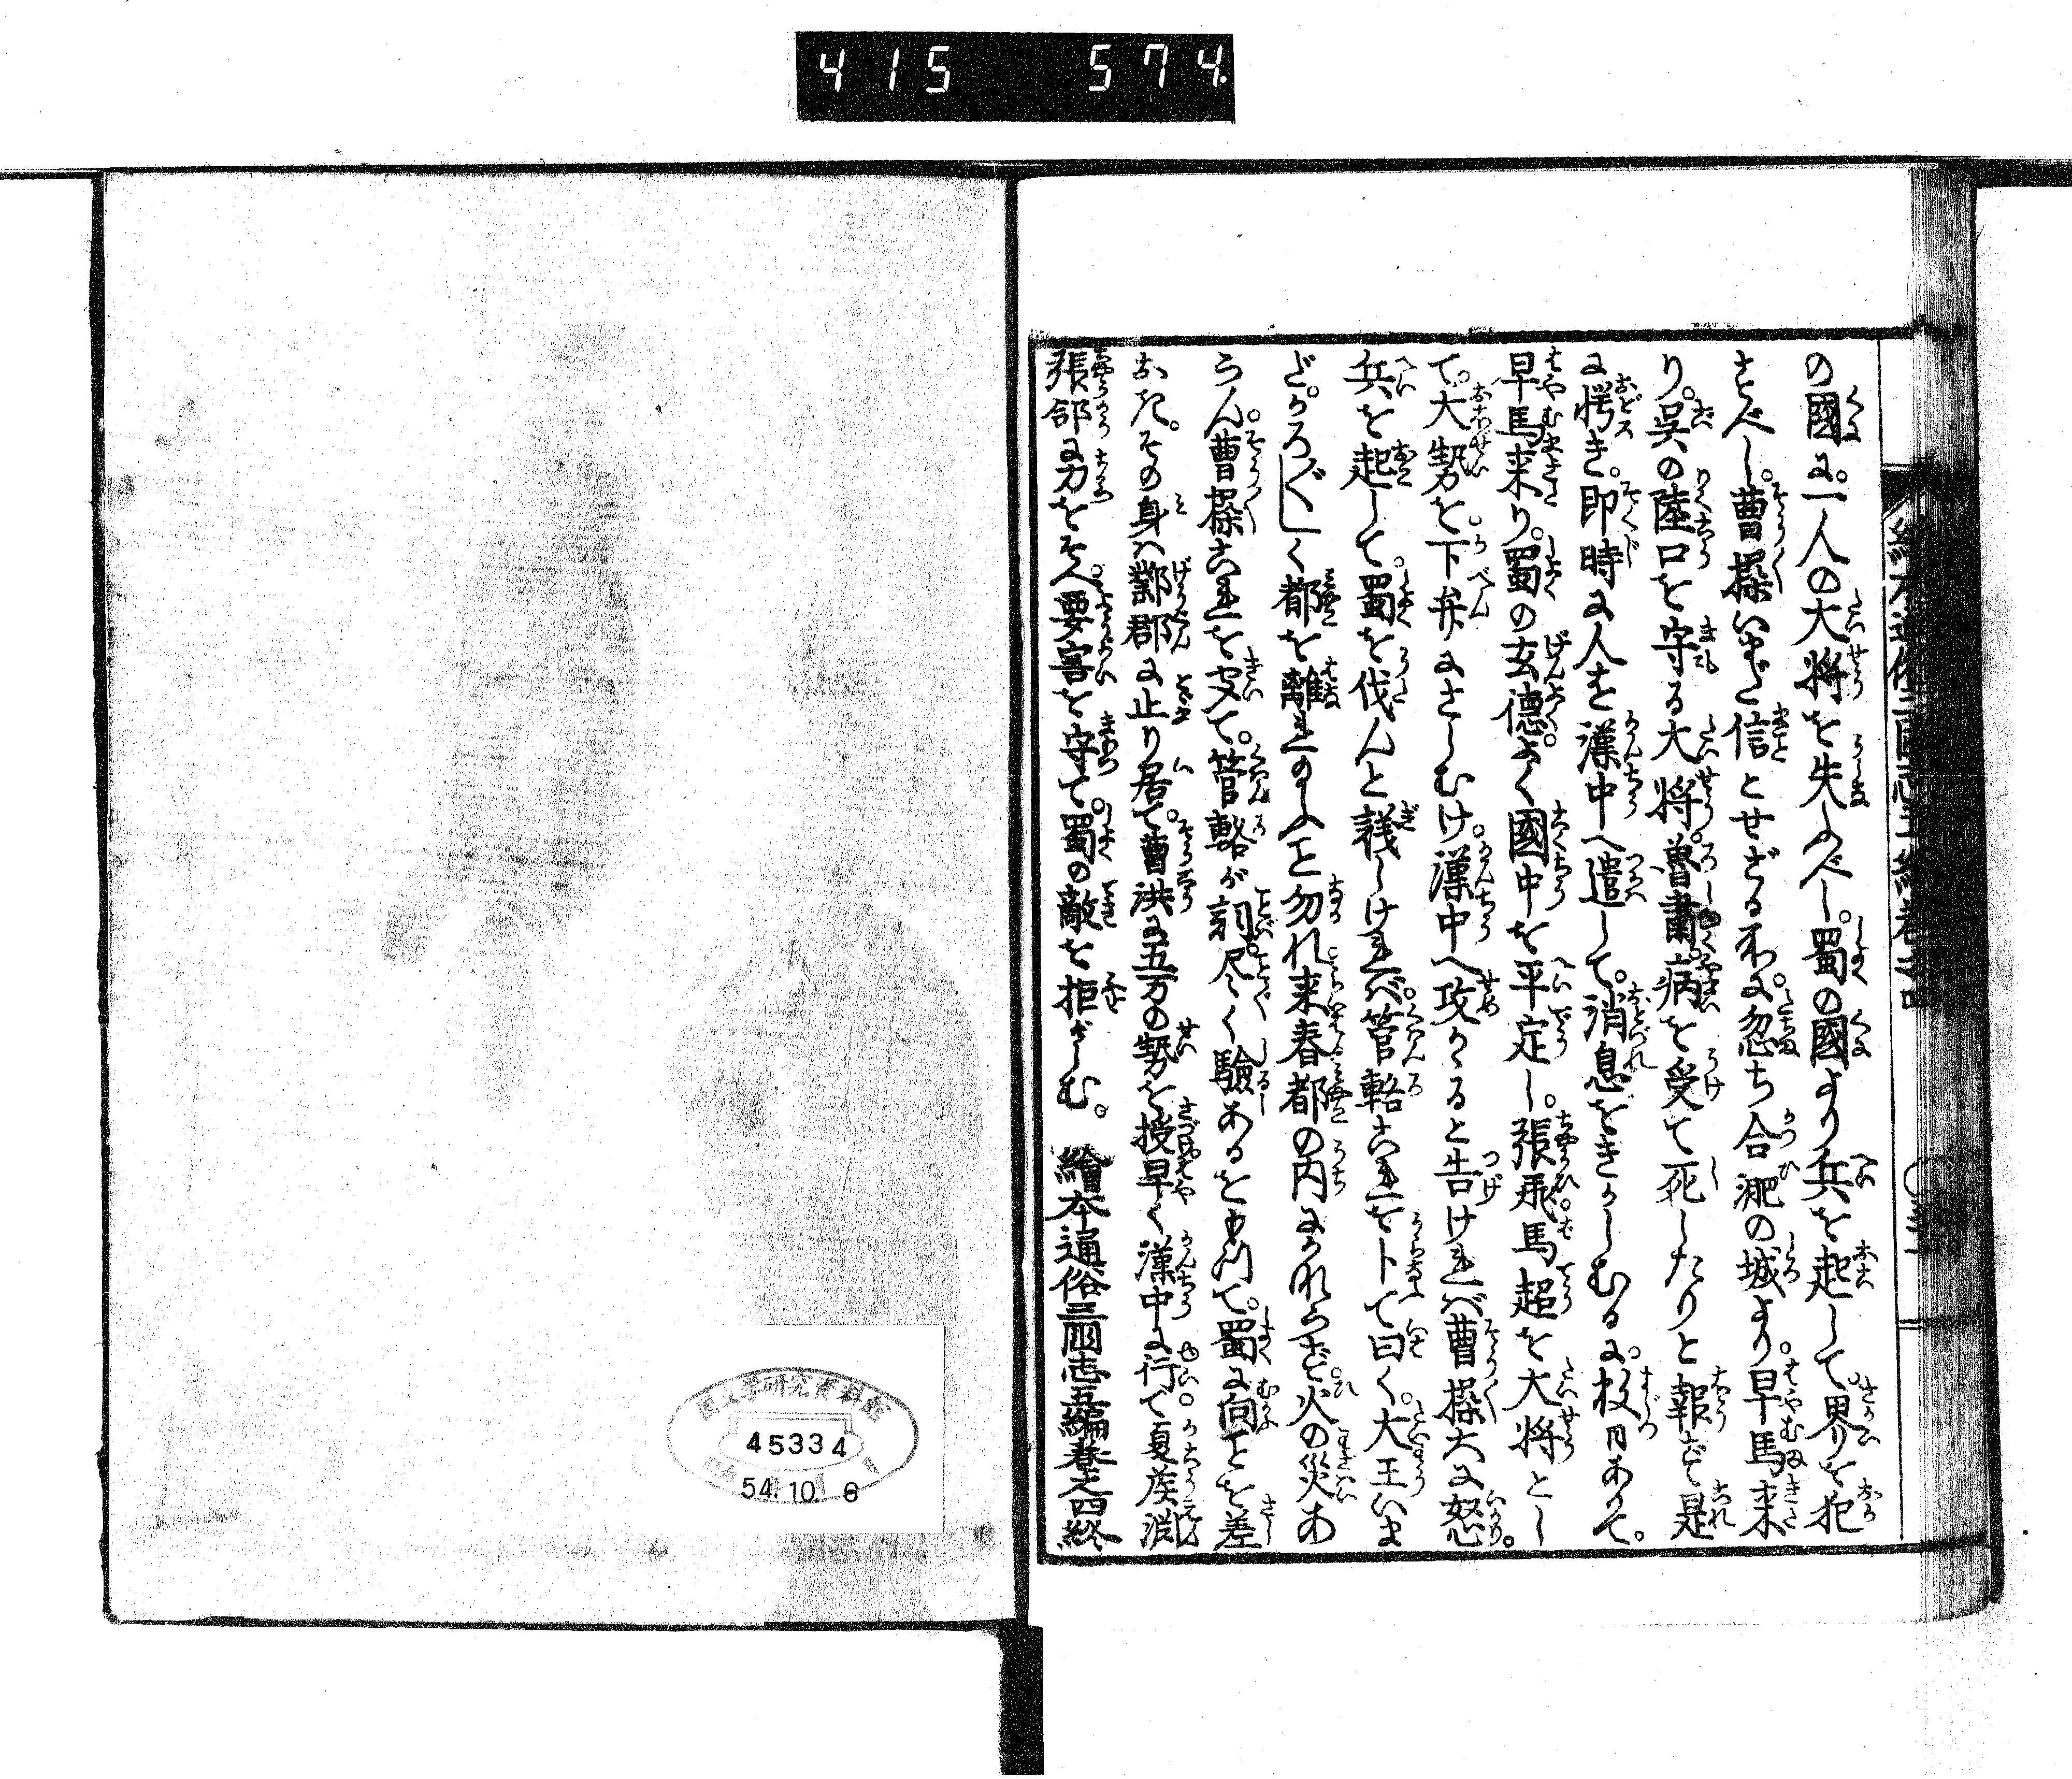 415 574
の國に。一人の大将を失ふべし。蜀の國より兵を起して。界を犯
すべし。曹操いまだ信とせざる所に。忽ち合淝の城より。早馬来
り。呉の陸口を守る大将。魯肅。病を受て死したりと報ず是
に愕き。即時に人を漢中へ遣して。消息をきかしむるに。数日ありて。
早馬来り。蜀の玄德。よく國中を平定し。張飛。馬超を大将とし
て。大勢を下弁にさしむけ。漢中へ攻かると告ければ曹操大に怒。
兵を起して。蜀を伐んと議しければ。管輅これを卜て曰く。大王いま
だ。かろ〴〵しく都を離れ玉ふこと勿れ来春都の内にかならず。火の災あ
らん。曹操これを聞て。管輅が詞。尽く驗あるを以て。蜀に向ことを差
おき。その身ハ鄴郡に止り居て。曹洪に五万の勢を授早く漢中に行て。夏侯淵
張郃に力をそへ。要害を守て。蜀の敵を拒がしむ。 繪本通俗三國志五編巻之四終
国文学研究資料館
45334
54.10.6